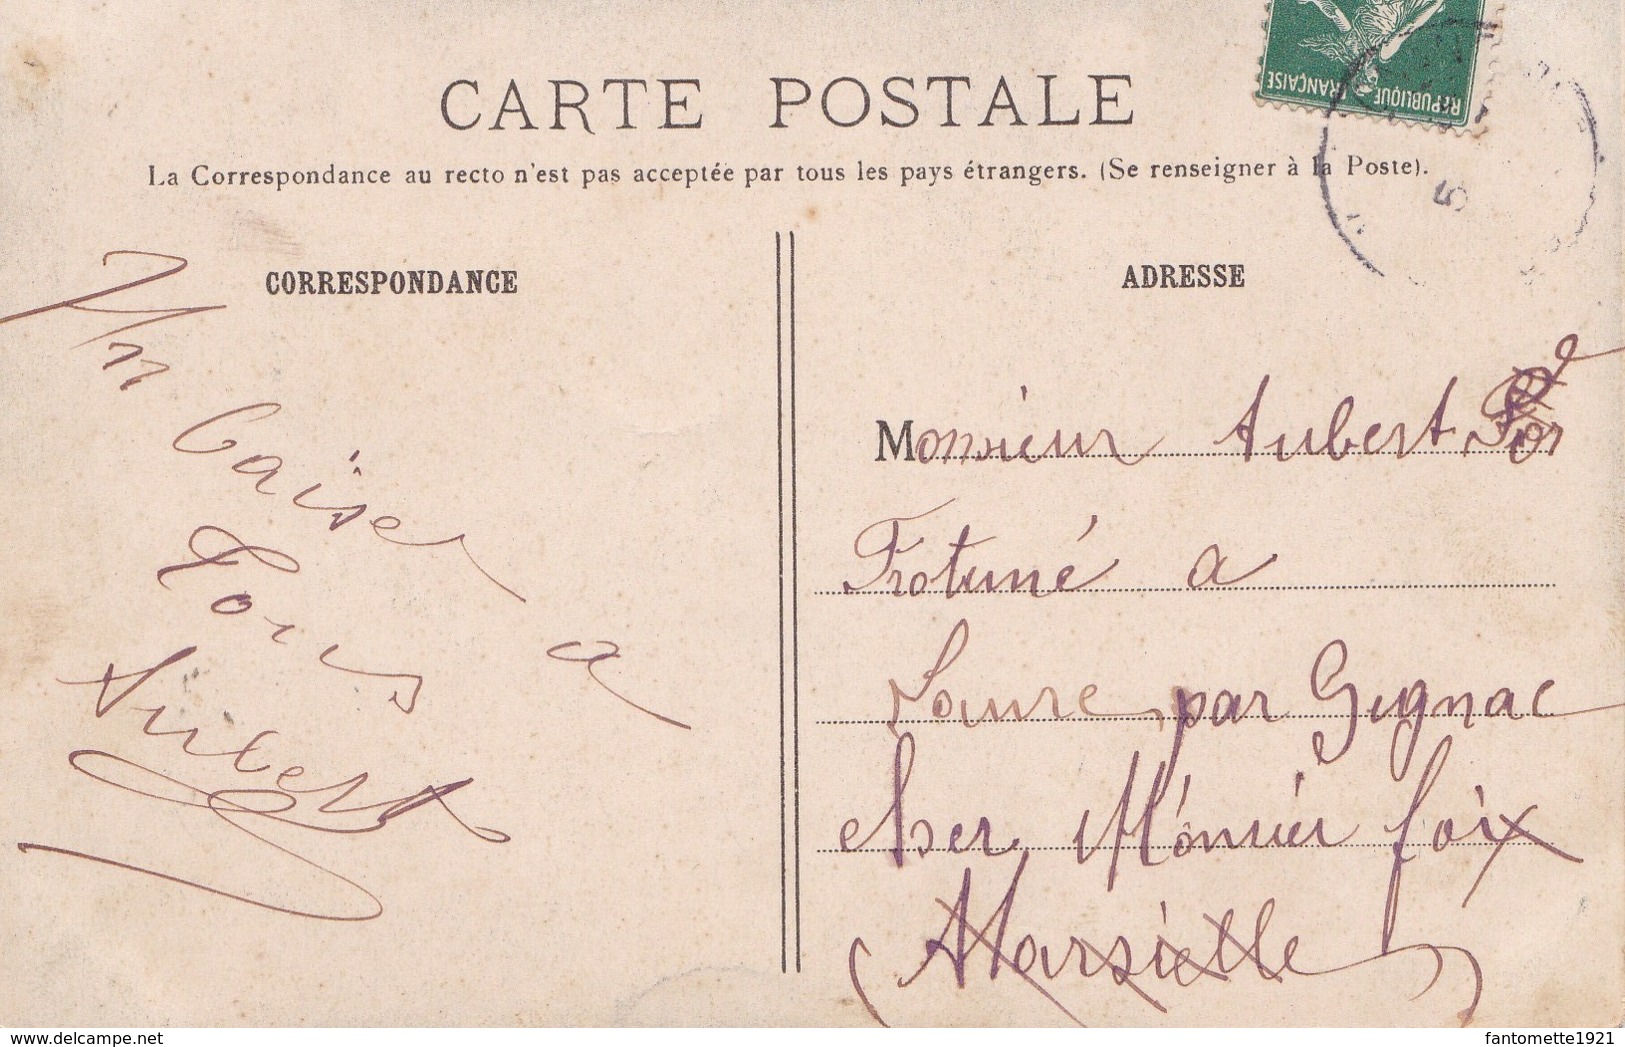 RÉPUBLIQUE FRANÇAISE
CARTE POSTALE
La Correspondance au recto n'est pas acceptée par tous les pays étrangers. (Se renseigner à la Poste).
5
CORRESPONDANCE
Un
baiser a
tous
Aubert
ADRESSE
Monsieur Aubert
Frotuné a
Laure par Gignac
cher Monsieur foix
(Marseille)
www.delcampe.net
fantomette1921